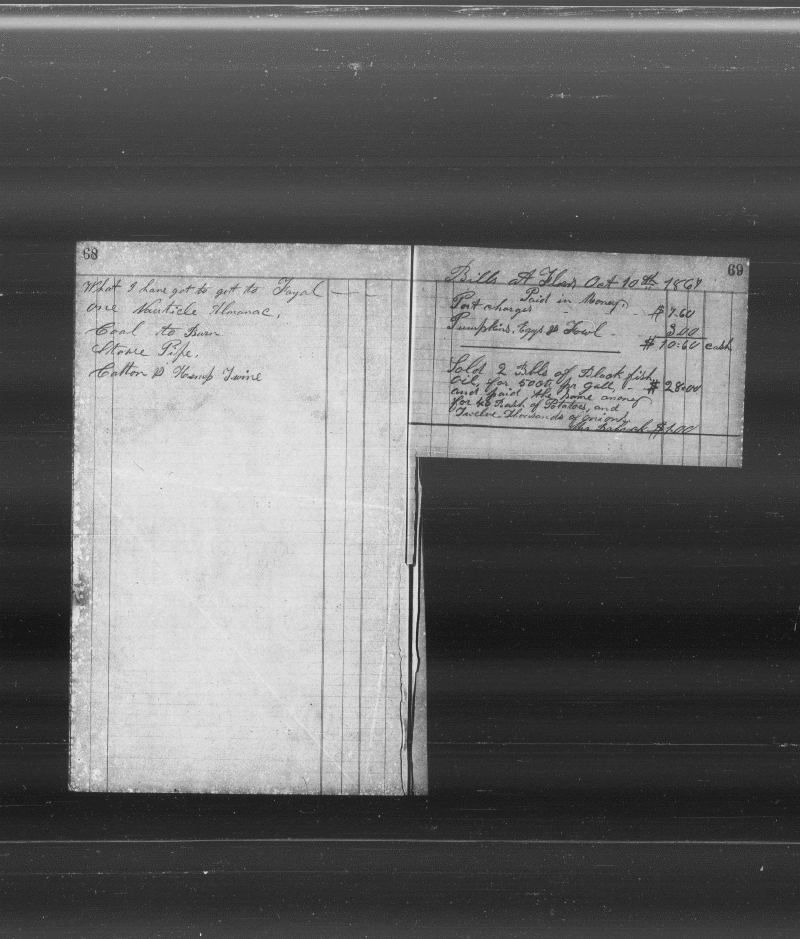 68
What I have got to get to Fayal
one Nauticle Almanac,
Coal to Burn
Stove Pipe,
Cotton & Hemp Twine
69
Bills At Flores Oct 10th 186
Paid in Money
Port charges - - $7.60
Pumpkins, Eggs & Fowl - 3.00
$10.60 cash
Sold 2 Bbls of Black fish
Oil, for 50cts pr Gall - $28.00
and paid the same money
for 40 Bush of Potatoes, and
Twelve thousands of onions
$1.00